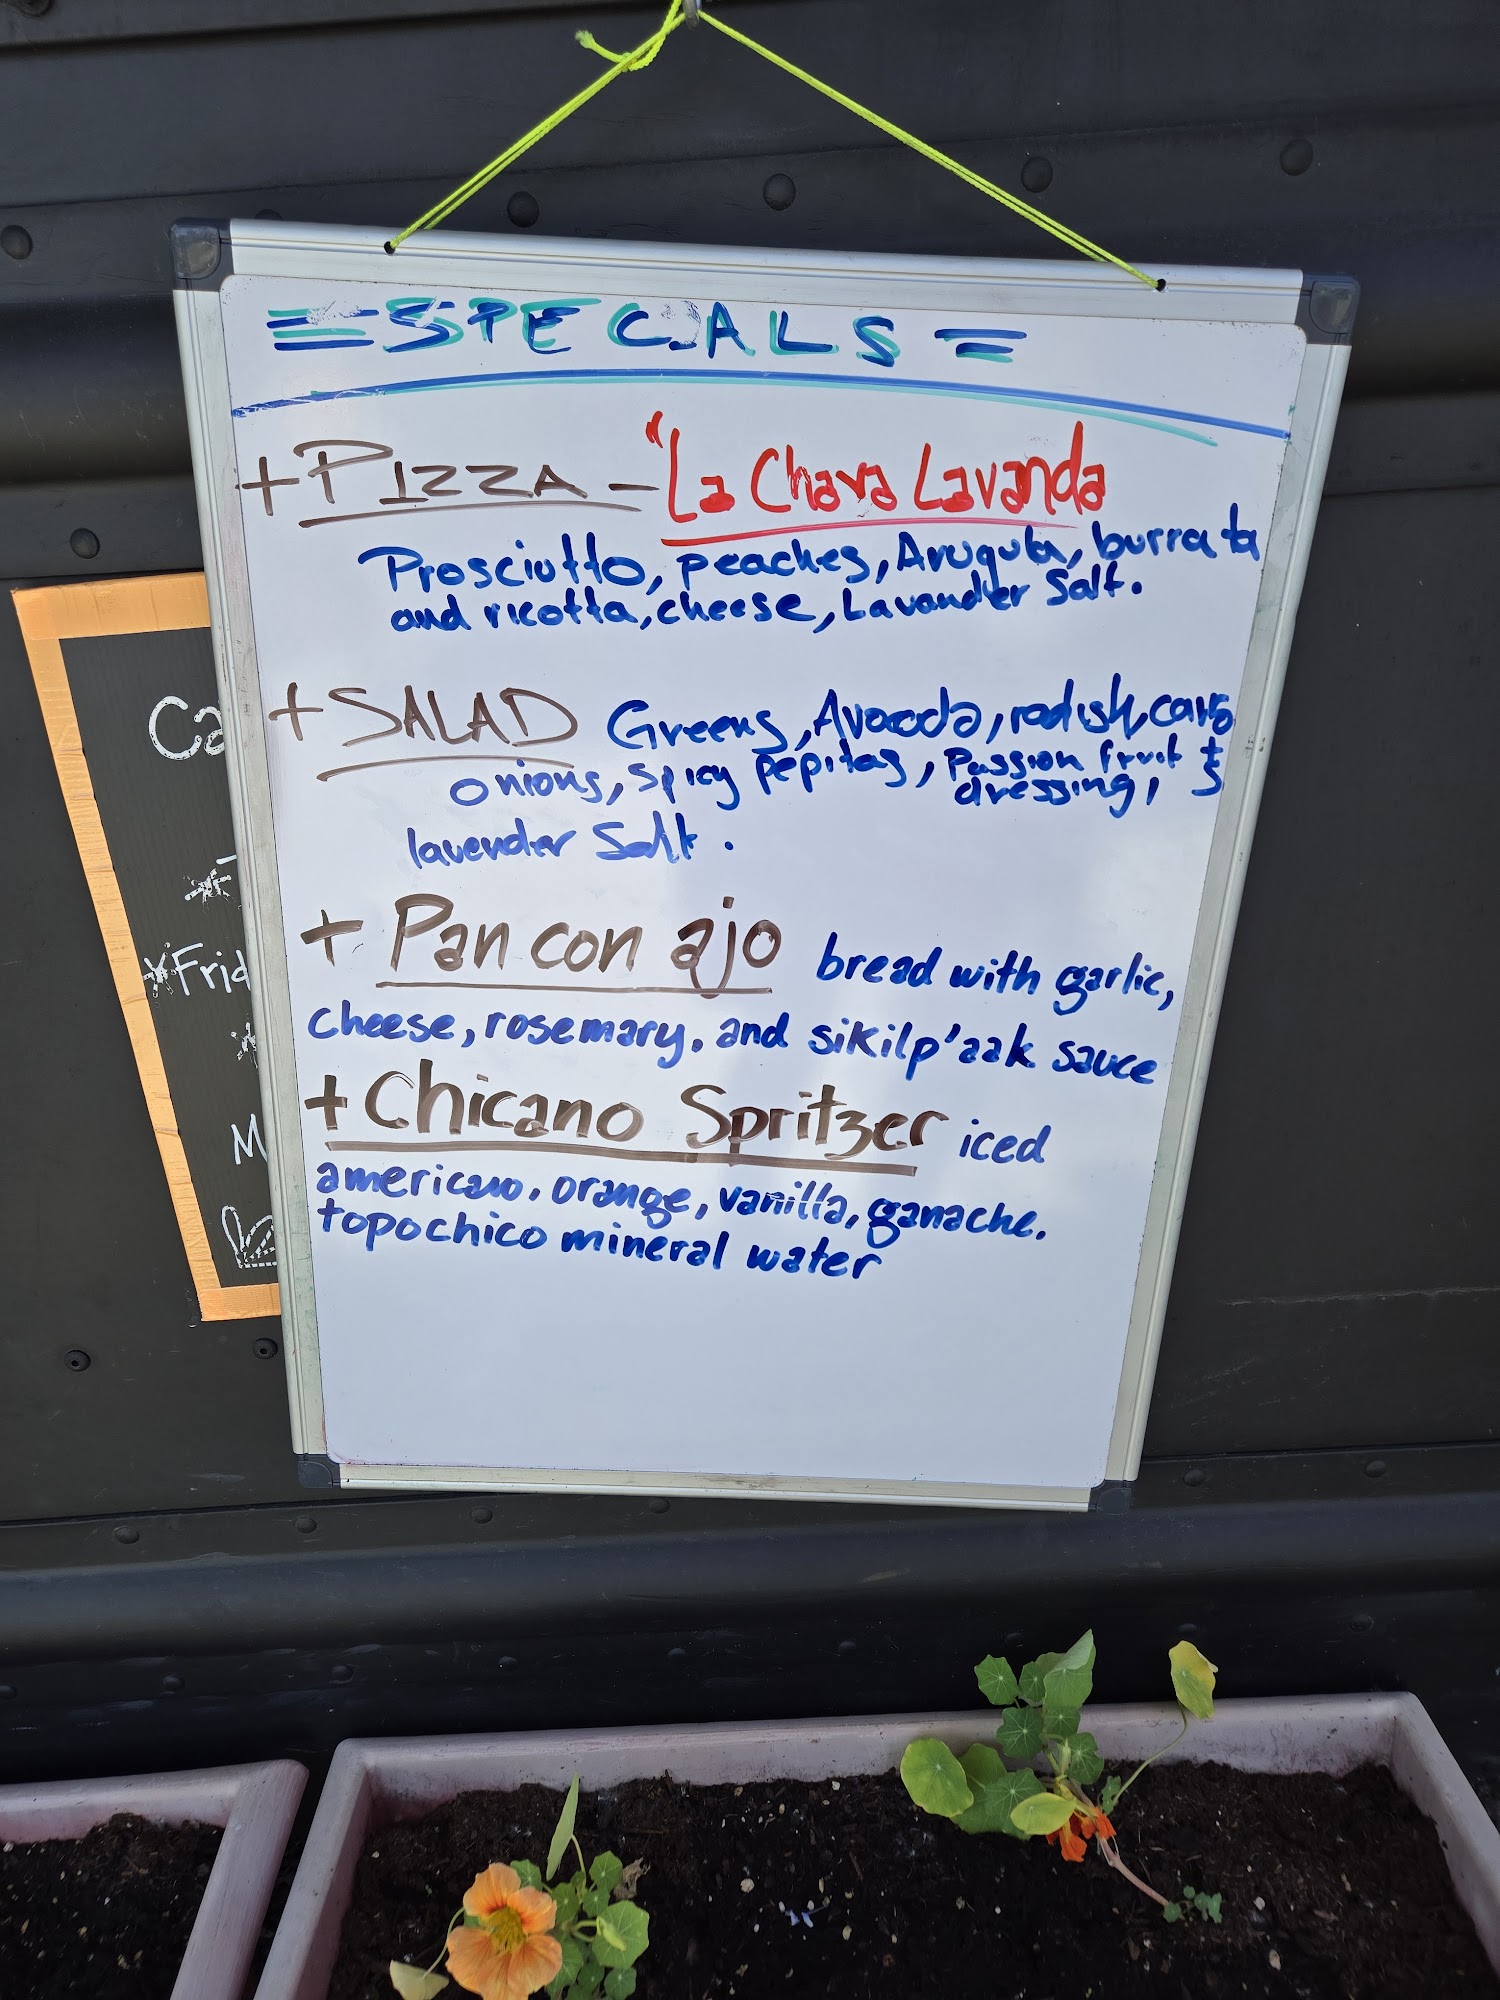 = SPECIALS =
+ PIZZA - "La Chava Lavanda
Prosciutto, peaches, Arugula, burrata
and ricotta, cheese, Lavander Salt.
+ SALAD Greens, Avocado, radish, carrots
onions, spicy pepitas, Passion fruit
dressing,
lavender Salt.
+ Pan con ajo bread with garlic,
cheese, rosemary, and sikilp'aak sauce
+ Chicano Spritzer iced
americano, orange, vanilla, ganache.
topochico mineral water
Ca
Frid
M